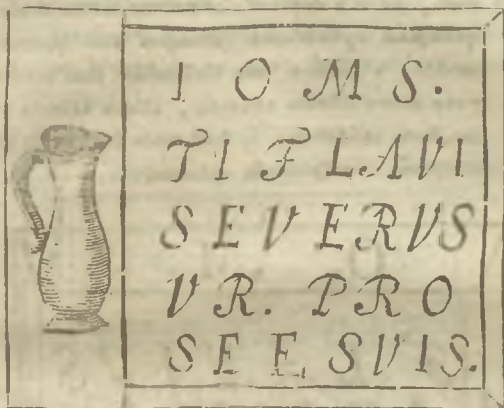 I O M S.
TI F LAVI
SEVERVS
VR. PRO
SE E SVIS.